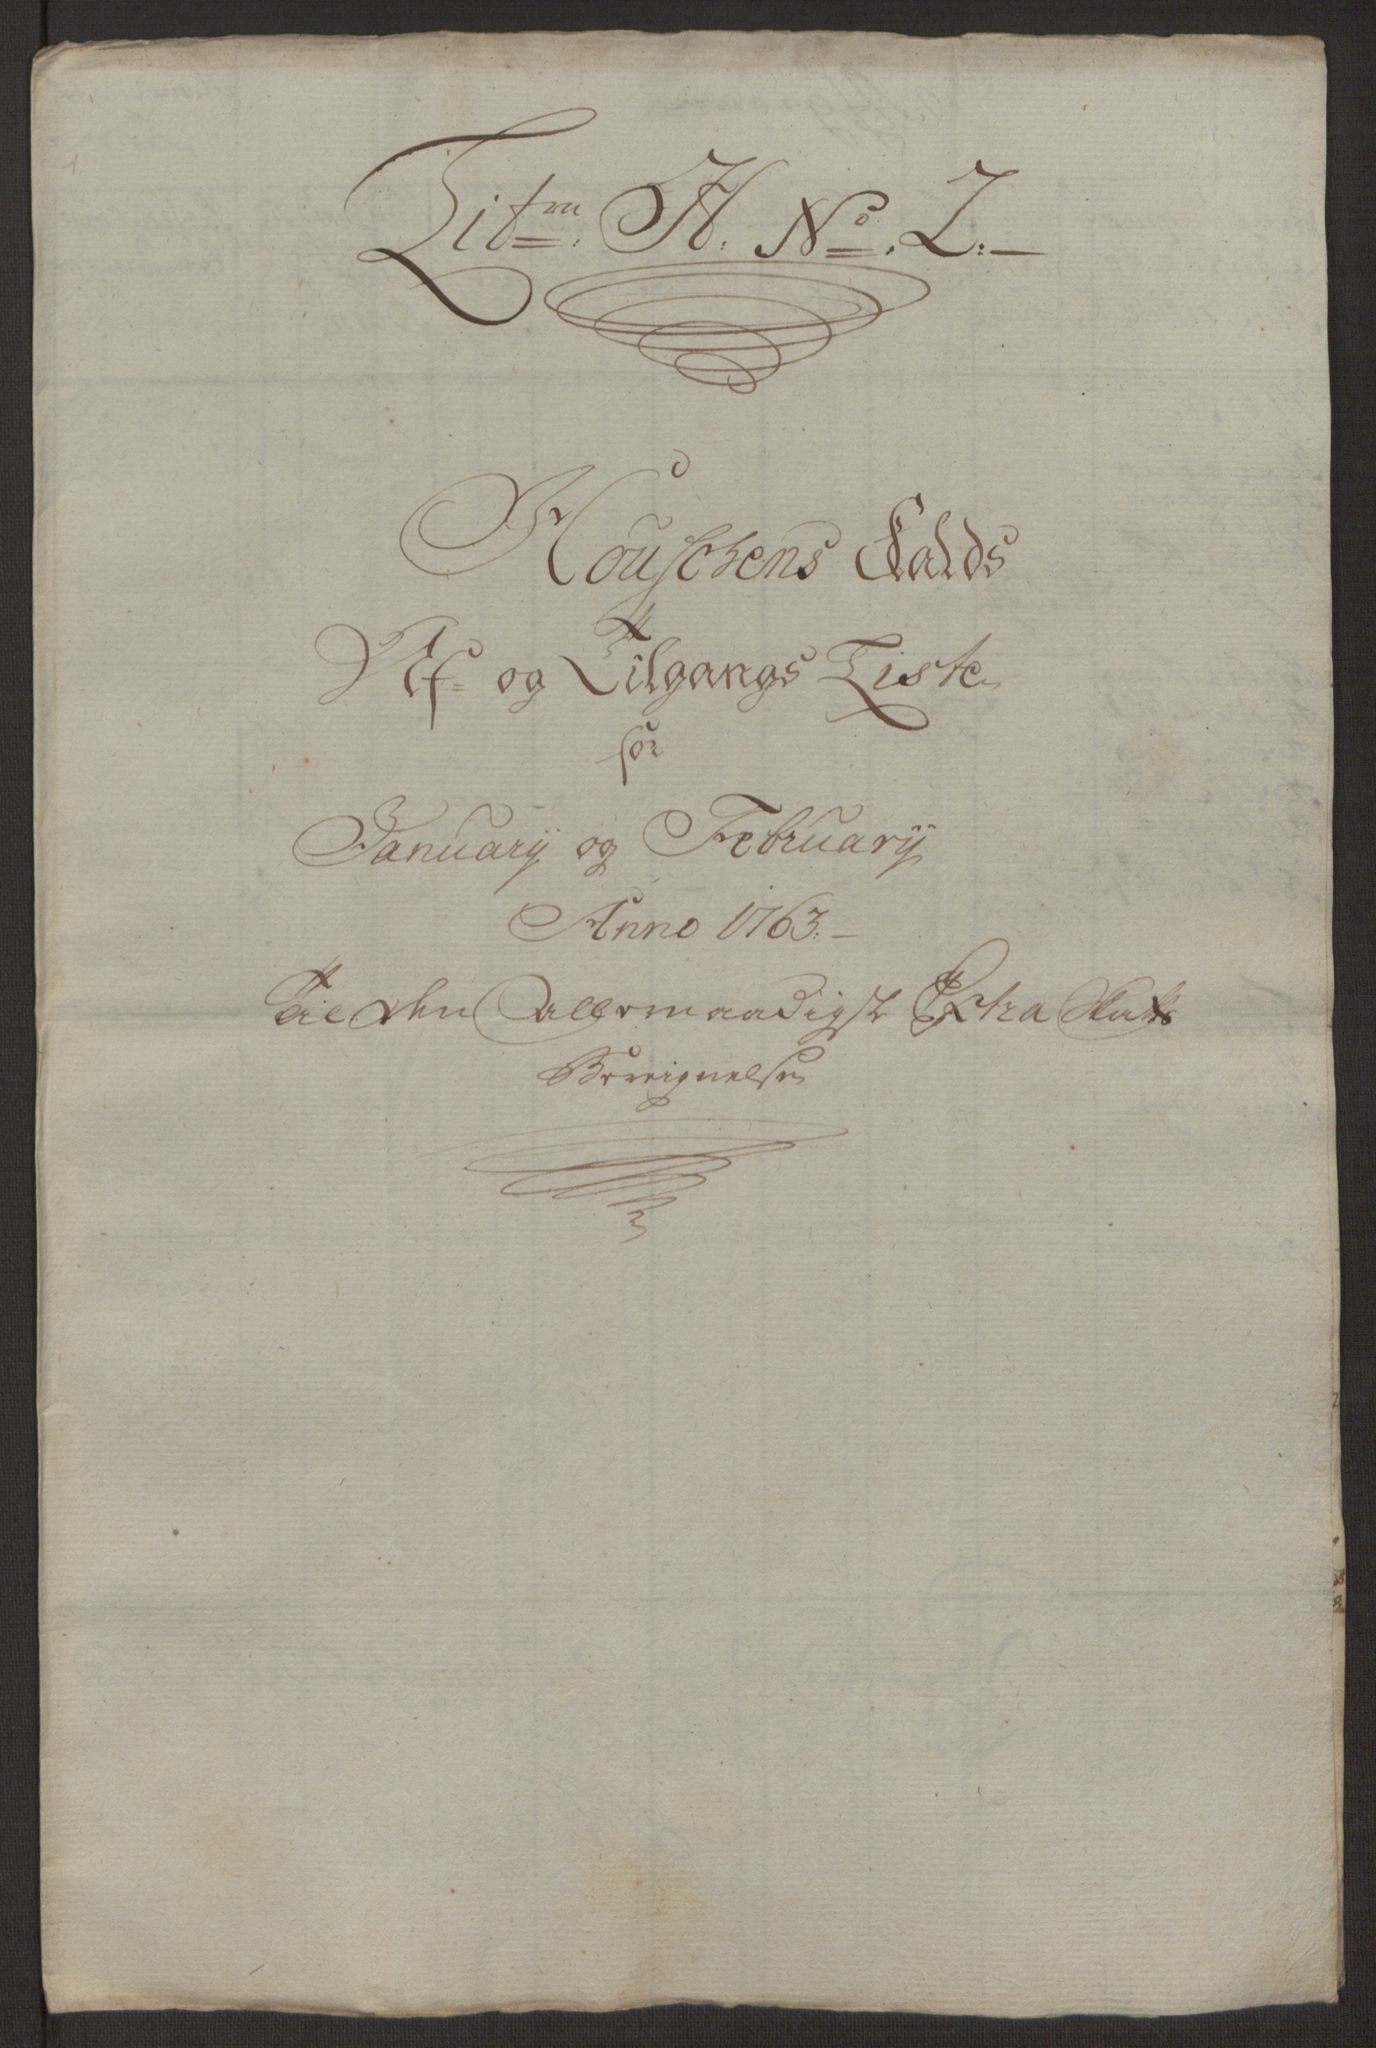 Litra. H. No. 2.
Kouschens Kalds
Af- og Tilgangs Liste
for
Januarÿ og Februarÿ
Anno 1763.
Til den Allernaadigst Extra Skatts
Bereignelse